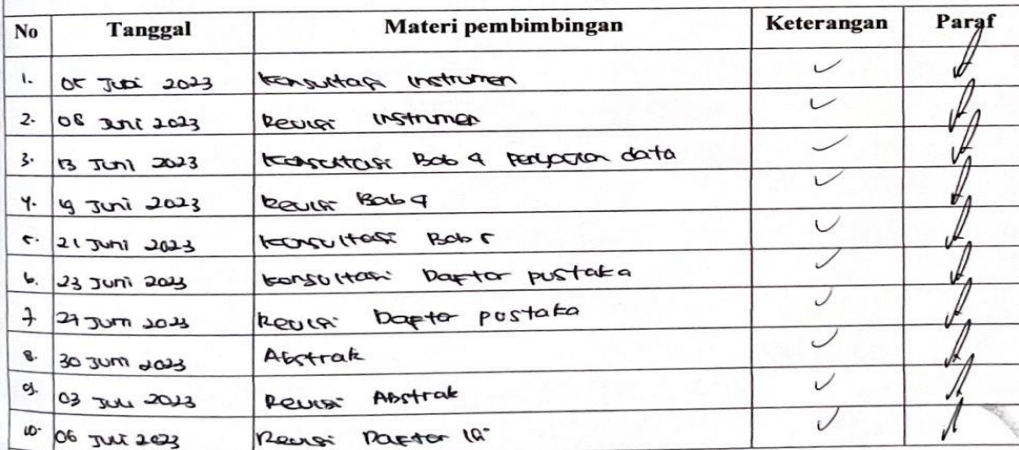 No Tanggal Materi pembimbingan Keterangan Paraf
1. 05 Juni 2023 Konsultasi Instrumen
2. 08 Juni 2023 Revisi Instrumen
3. 13 Juni 2023 Konsultasi Bab 4 Penyajian data
4. 19 Juni 2023 Revisi Bab 4
5. 21 Juni 2023 Konsultasi Bab 5
6. 23 Juni 2023 Konsultasi Daftar pustaka
7. Juni 2023 Revisi Daftar pustaka
8. 30 Juni 2023 Abstrak
9. 03 Juli 2023 Revisi Abstrak
10. 06 Juli 2023 Revisi Daftar